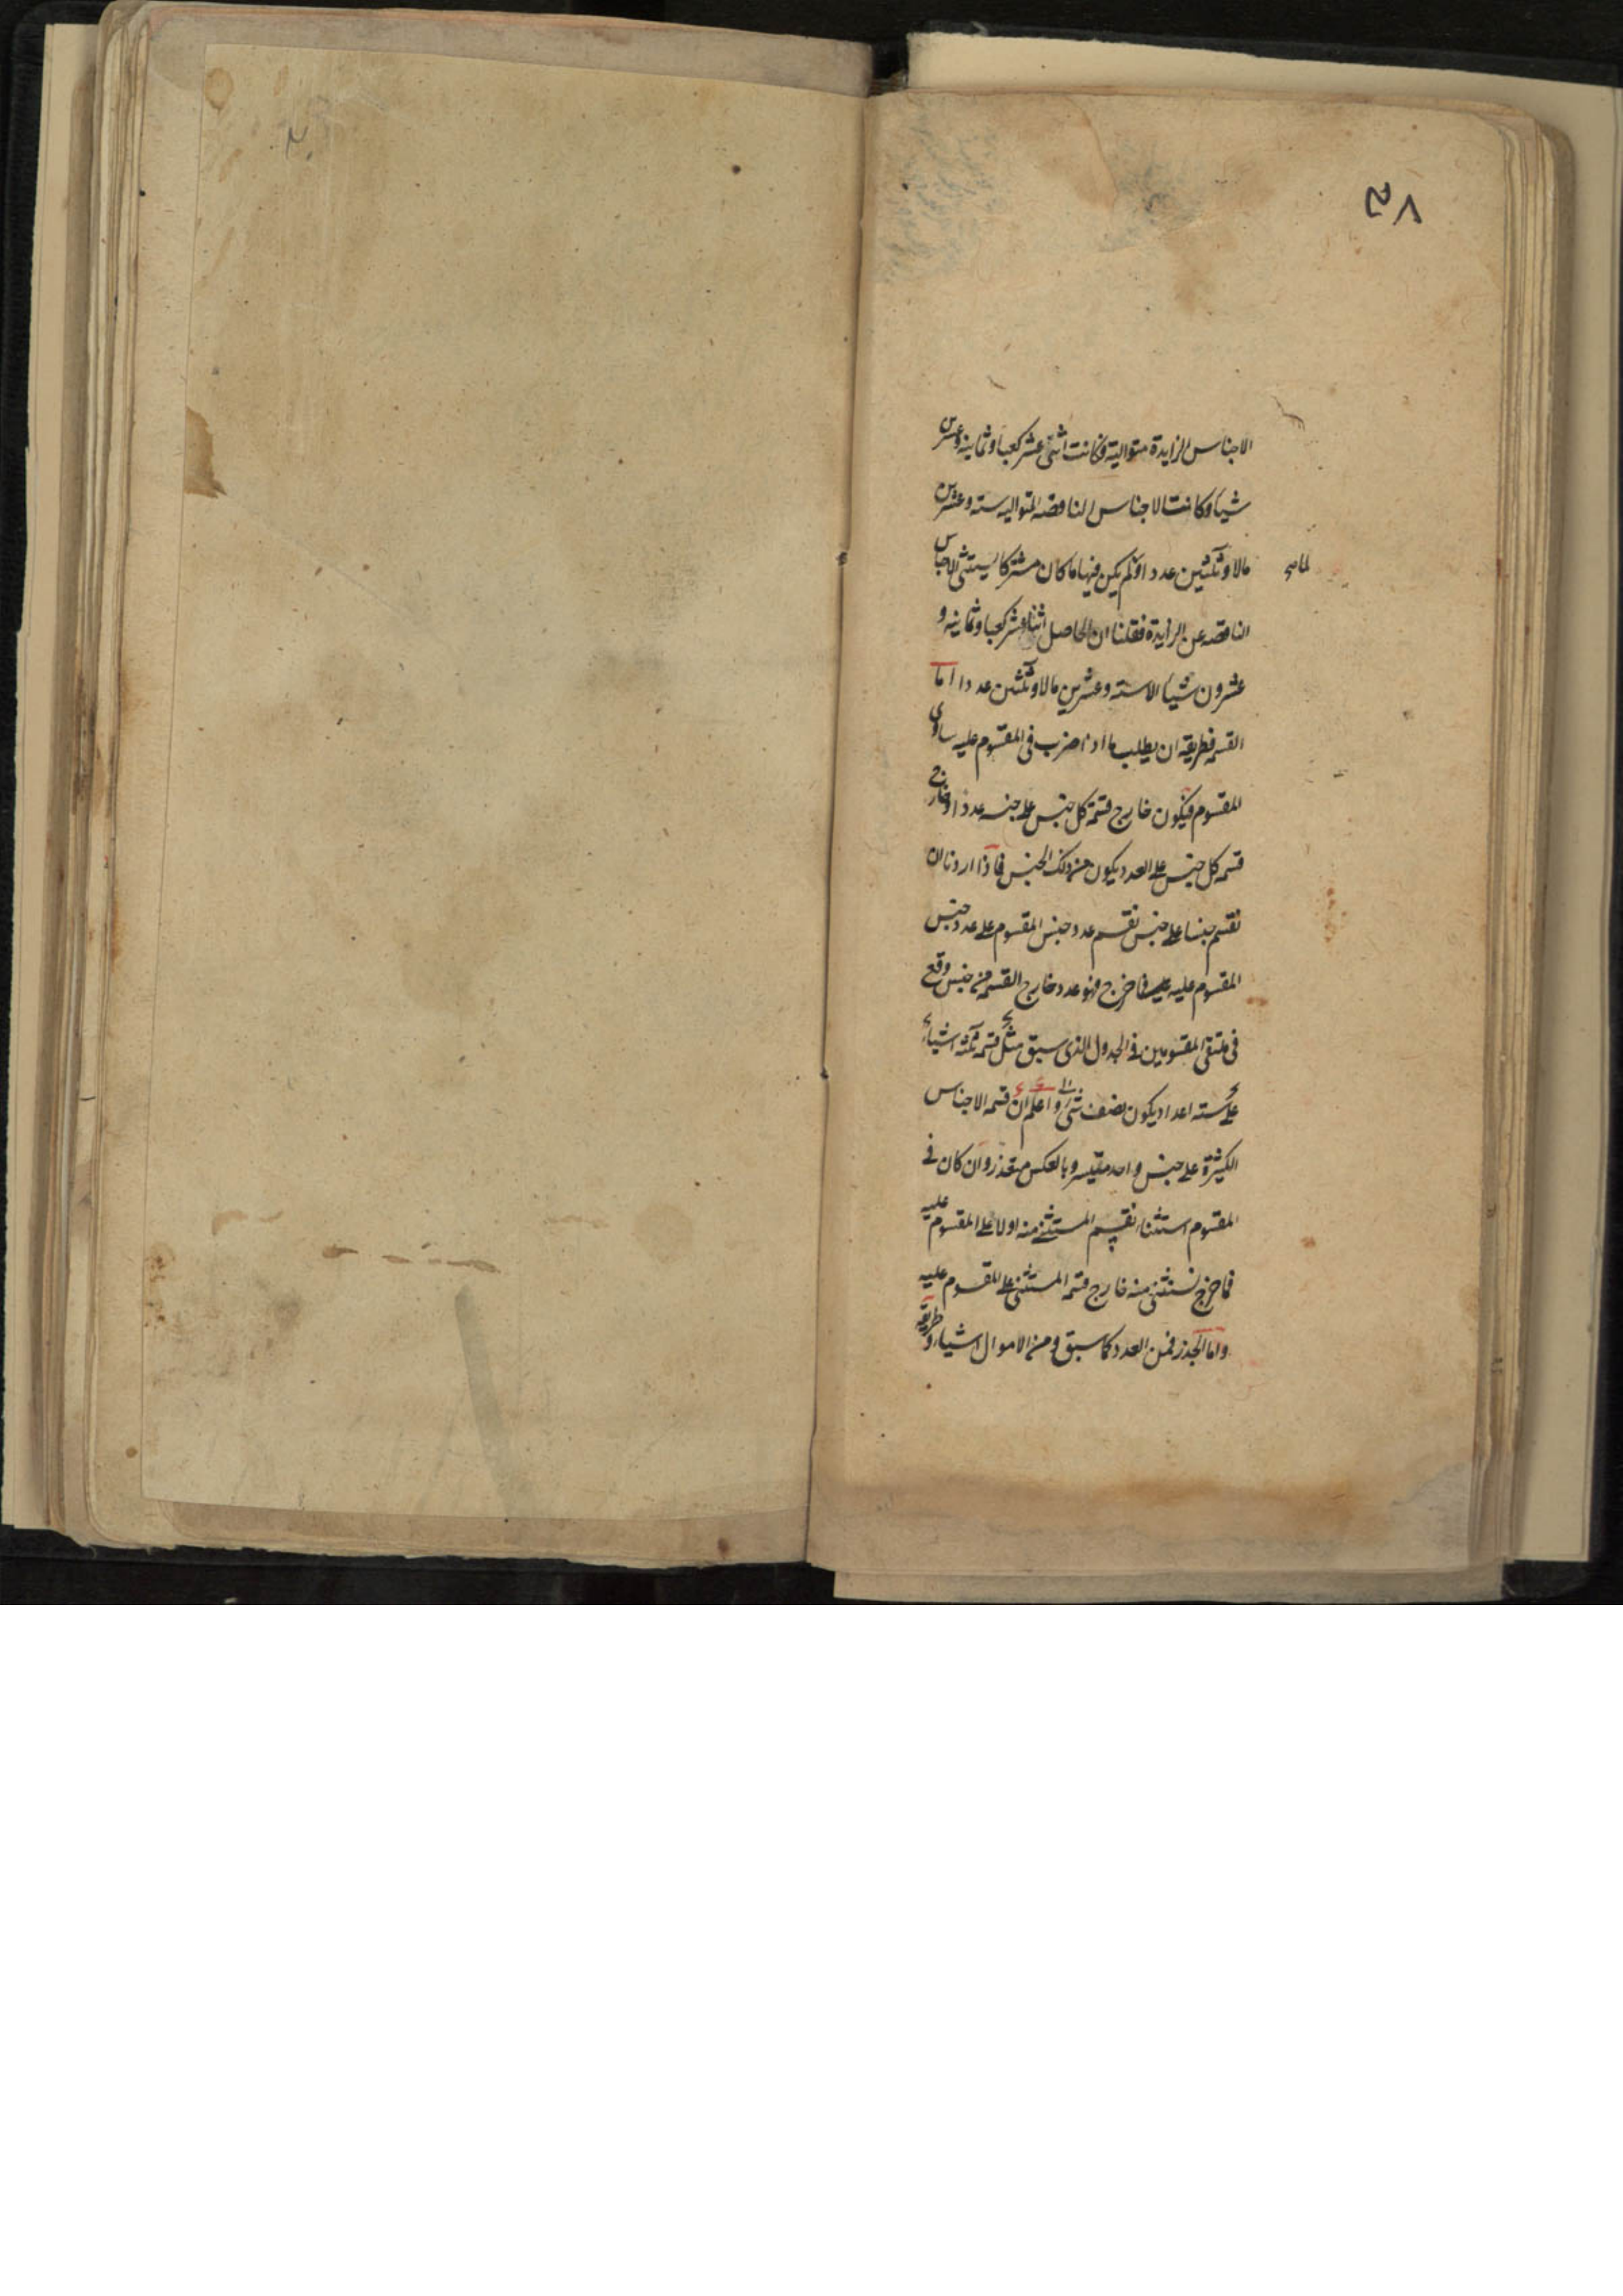 ٥٧
الاجناس الزايدة متوالية وكانت اثنى عشر كعبا وثمانيه وعشرين
شيا وكانت الاجناس الناقصه المتواليه سته وعشرين
مالا وثلثين عددا ولم يكن فيها ما كان مشتركا يستثنى الاجناس
الناقصه عن الزايدة فقلنا ان الحاصل اثنا عشر كعبا وثمانيه و
عشرون شيا الا سته وعشرين مالا وثلثين عددا اما
القسمه فطريقه ان يطلب ما اذا ضرب فى المقسوم عليه ساوى
المقسوم فيكون خارج قسمة كل جنس على جنسه عددا وخارج
قسمه كل جنس على العدد يكون من ذلك الجنس فاذا اردنا ان
نقسم جنسا على جنس نقسم عدد جنس المقسوم على عدد جنس
المقسوم عليه فما خرج فهو عدد خارج القسمه من جنس وقع
فى ملتقى المقسومين فى الجدول الذى سبق مثل قسمه ثلثه اشياء
على سته اعداد يكون نصف شئ واعلم ان قسمه الاجناس
الكثيرة على جنس واحد متيسر وبالعكس متعذر وان كان فى
المقسوم استثناء نقسم المستثنى منه اولا على المقسوم عليه
فما خرج نستثنى منه خارج قسمه المستثنى على المقسوم عليه
واما الجذر فمن العدد كما سبق ومن الاموال اشياء وطريقه